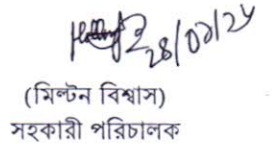 28/07/24
(মিল্টন বিশ্বাস)
সহকারী পরিচালক